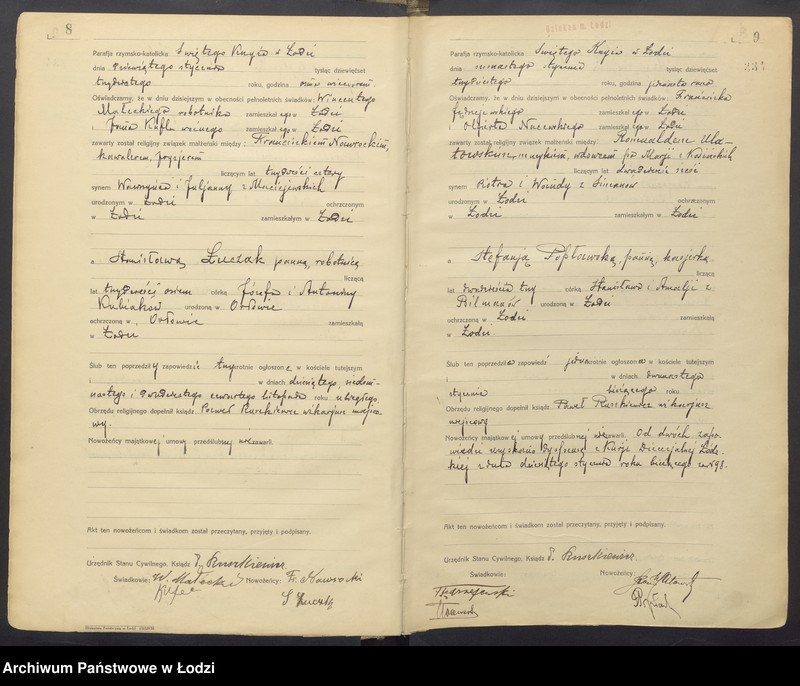 8
Parafja rzymsko-katolicka Świętego Krzyża w Łodzi
dnia dziewiątego stycznia tysiąc dziewięćset
trzydziestego roku, godzina ósma wieczorem
Oświadczamy, że w dniu dzisiejszym w obecności pełnoletnich świadków: Wincentego
Małeckiego robotnika zamieszkał ego w Łodzi
i Jana Kafla zamieszkał ego w Łodzi
zawarty został religijny związek małżeński między: Franciszkiem Nawrockim,
kawalerem,
liczącym lat trzydzieści cztery
synem Wawrzyńca i Juljanny z Maciejewskich
urodzonym w Łodzi ochrzczonym
w Łodzi zamieszkałym w Łodzi
a Stanisławą Łuczak panną, robotnicą
liczącą
lat trzydzieści osiem córką Józefa i Antoniny
Kubiaków urodzoną w Orłowie
ochrzczoną w Orłowie zamieszkałą
w Łodzi
Ślub ten poprzedziły zapowiedzie trzykrotnie ogłoszone w kościele tutejszym
i w dniach dziesiątego, siedem-
nastego i dwudziestego czwartego listopada roku ubiegłego.
Obrzędu religijnego dopełnił ksiądz Paweł Ruszkiewicz wikarjusz miejsco-
wy.
Nowożeńcy majątkowej umowy przedślubnej nie zawarli.
Akt ten nowożeńcom i świadkom został przeczytany, przyjęty i podpisany.
Urzędnik Stanu Cywilnego, Ksiądz P. Ruszkiewicz
Świadkowie: W. Małecki Nowożeńcy: Fr. Nawrocki
9
Parafja rzymsko-katolicka Świętego Krzyża w Łodzi
dnia stycznia tysiąc dziewięćset
trzydziestego roku, godzina jedenasta rano
Oświadczamy, że w dniu dzisiejszym w obecności pełnoletnich świadków: Franciszka
Jędrzejewskiego zamieszkał ego w Łodzi
i zamieszkał ego w Łodzi
zawarty został religijny związek małżeński między: Romualdem
wdowcem po Marji z
liczącym lat dwadzieścia sześć
synem Piotra i Wandy z
urodzonym w Łodzi ochrzczonym
w Łodzi zamieszkałym w Łodzi
a Stefanją Popławską, panną, kasjerką
liczącą
lat dwadzieścia trzy córką Stanisława i Amalji z
urodzoną w Łodzi
ochrzczoną w Łodzi zamieszkałą
w Łodzi.
Ślub ten poprzedziła zapowiedź jednokrotnie ogłoszona w kościele tutejszym
i w dniach dwunastego
stycznia bieżącego roku
Obrzędu religijnego dopełnił ksiądz Paweł Ruszkiewicz wikarjusz
miejscowy
Nowożeńcy majątkowej umowy przedślubnej nie zawarli. Od dwóch zapo-
wiedzi uzyskano dyspensę z Kurji Diecezjalnej Łódz-
kiej z dnia dziesiątego stycznia roku bieżącego za N 98.
Akt ten nowożeńcom i świadkom został przeczytany, przyjęty i podpisany.
Urzędnik Stanu Cywilnego, Ksiądz P. Ruszkiewicz
Świadkowie: Nowożeńcy:
Archiwum Państwowe w Łodzi